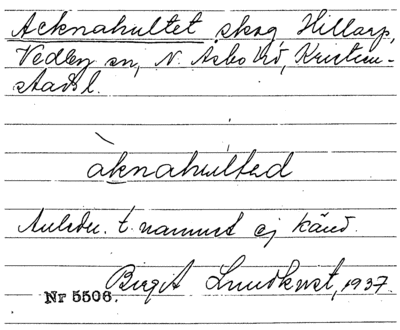 Acknahultet skog, Hillarp,
Vedby sn, N. Åsbo hd, Kristian-
stads l.
àknahulted
Anledn. t. namnet ej känd.
Birgit Lundkvist, 1937.
Nr 5506.